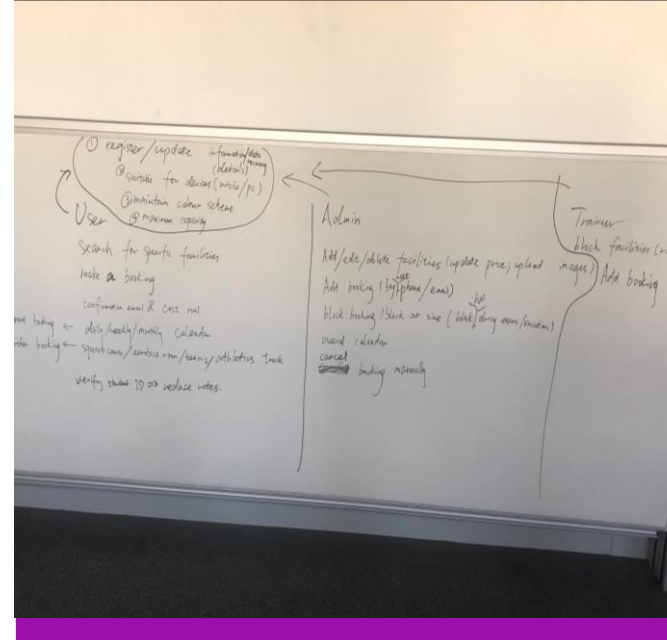 ① register/update information/data
(details)
② suitable for devices (mobile/pc)
③ maintain colour scheme
④ maximum capacity
User
Search for specific facilities
make a booking
confirmation email & cost
booking ← daily/weekly/monthly calendar
booking ← squash courts/aerobics room/tennis/athletics track
verify student ID => reduce rates.
Admin
Add/edit/delete facilities (update price, upload images)
Add booking (by phone/email)
block booking/block out time (block during exam/vacation)
overall calendar
cancel
booking manually
Trainer
block facilities
Add booking